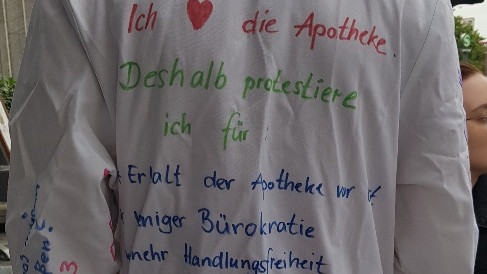 Ich ♥ die Apotheke.
Deshalb protestiere
ich für:
Erlalt der Apotheke vor
weniger Bürokratie
mehr Handlungsfreiheit